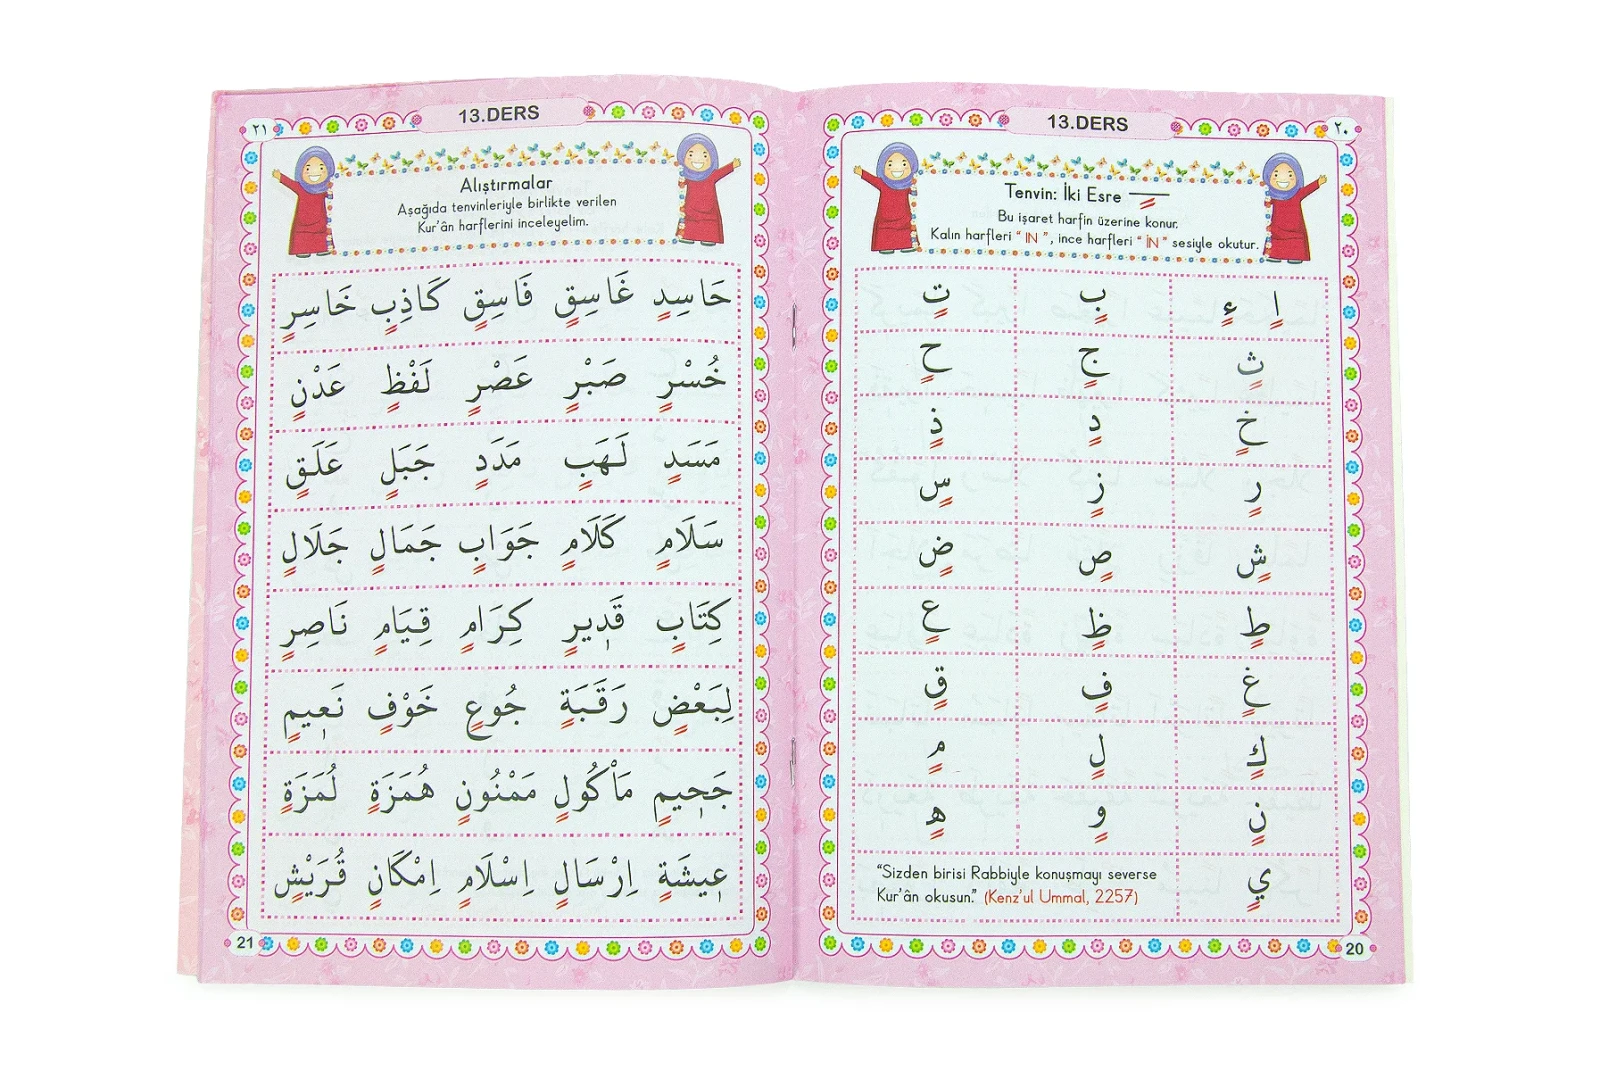 ٢٠
13.DERS
Tenvin: İki Esre ـٍ
Bu işaret harfin üzerine konur.
Kalın harfleri “ IN ”, ince harfleri “ İN ” sesiyle okutur.
اٍ ءٍ بٍ تٍ
ثٍ جٍ حٍ
خٍ دٍ ذٍ
رٍ زٍ سٍ
شٍ صٍ ضٍ
طٍ ظٍ عٍ
غٍ فٍ قٍ
كٍ لٍ مٍ
نٍ وٍ هٍ
يٍ
“Sizden birisi Rabbiyle konuşmayı severse
Kur’ân okusun.” (Kenz’ul Ummal, 2257)
20
٢١
13.DERS
Alıştırmalar
Aşağıda tenvinleriyle birlikte verilen
Kur’ân harflerini inceleyelim.
حَاسِدٍ غَاسِقٍ فَاسِقٍ كَاذِبٍ خَاسِرٍ
خُسْرٍ صَبْرٍ عَصْرٍ لَفْظٍ عَدْنٍ
مَسَدٍ لَهَبٍ مَدَدٍ جَبَلٍ عَلَقٍ
سَلَامٍ كَلَامٍ جَوَابٍ جَمَالٍ جَلَالٍ
كِتَابٍ قَدٖيرٍ كِرَامٍ قِيَامٍ نَاصِرٍ
لِبَعْضٍ رَقَبَةٍ جُوعٍ خَوْفٍ نَعٖيمٍ
جَحٖيمٍ مَاْكُولٍ مَمْنُونٍ هُمَزَةٍ لُمَزَةٍ
عٖيشَةٍ اِرْسَالٍ اِسْلَامٍ اِمْكَانٍ قُرَيْشٍ
21